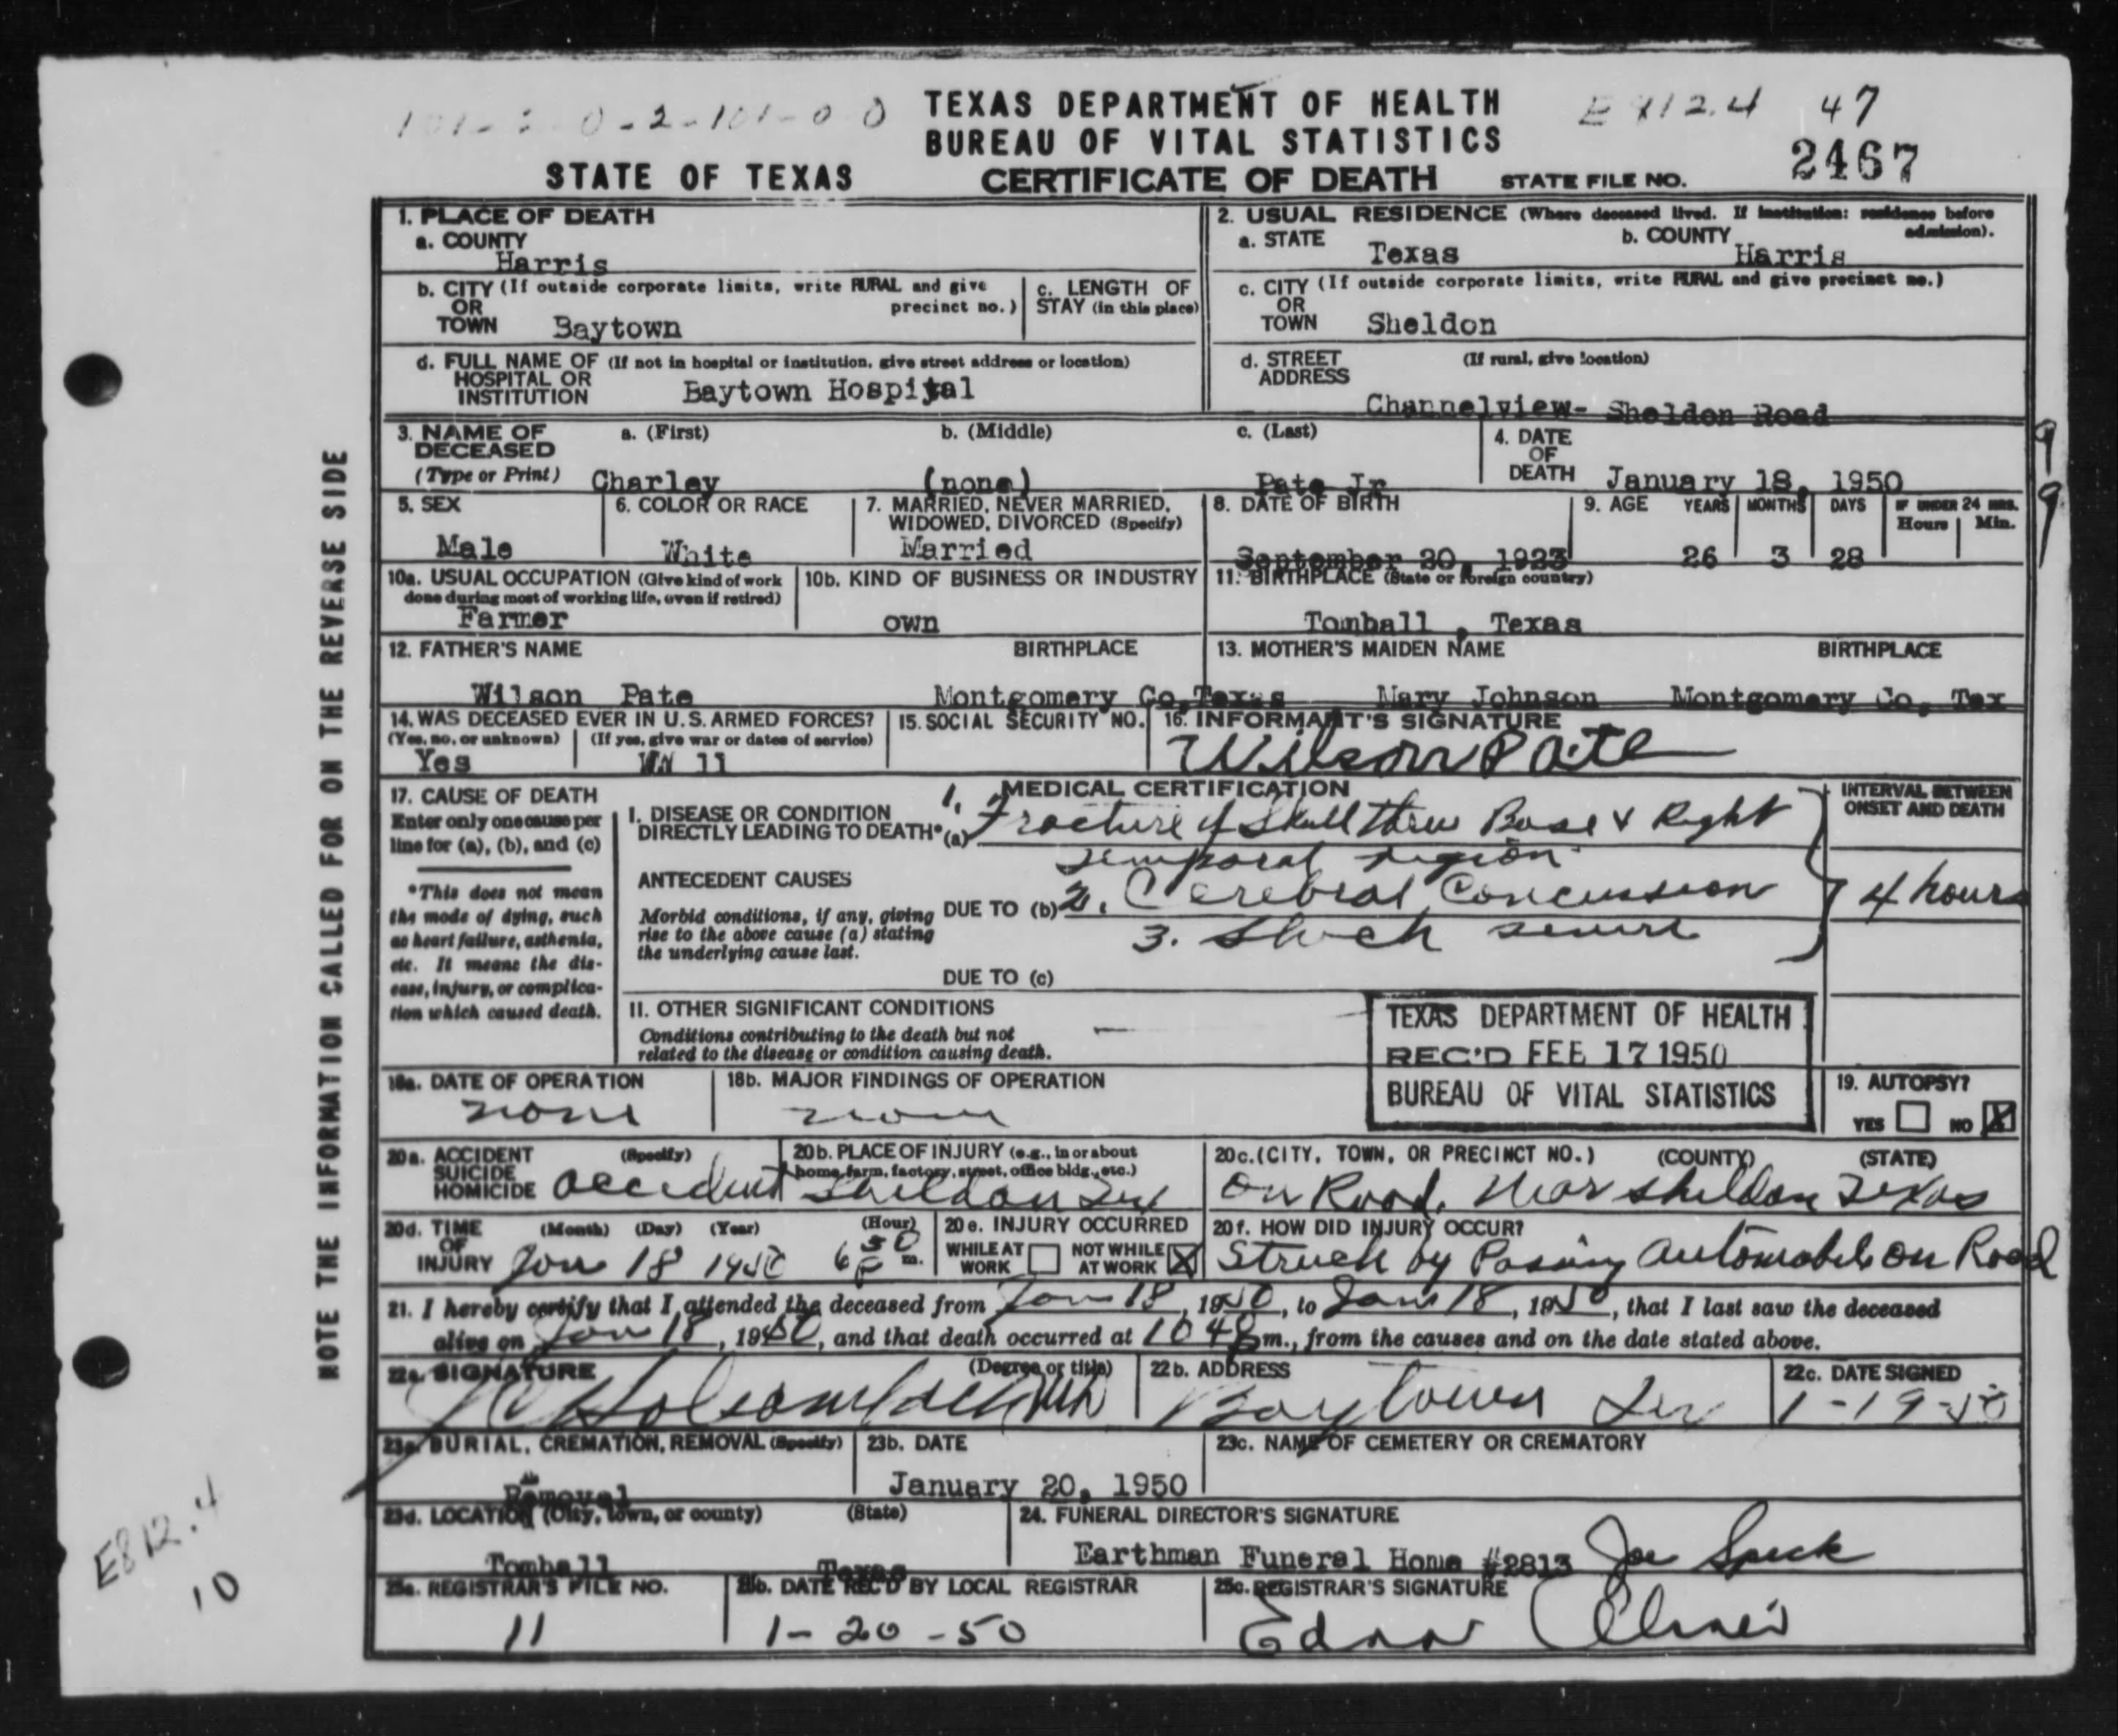 101- 0-2-101-0 0
TEXAS DEPARTMENT OF HEALTH
E 812.4 47
BUREAU OF VITAL STATISTICS
2467
STATE OF TEXAS
CERTIFICATE OF DEATH
STATE FILE NO.
1. PLACE OF DEATH
a. COUNTY
Harris
2. USUAL RESIDENCE (Where deceased lived. If institution: residence before admission).
a. STATE
Texas
b. COUNTY
Harris
b. CITY (If outside corporate limits, write RURAL and give
OR precinct no.)
TOWN Baytown
c. LENGTH OF
STAY (in this place)
c. CITY (If outside corporate limits, write RURAL and give precinct no.)
OR
TOWN Sheldon
d. FULL NAME OF (If not in hospital or institution, give street address or location)
HOSPITAL OR
INSTITUTION
Baytown Hospital
d. STREET (If rural, give location)
ADDRESS
Channelview- Sheldon Road
3. NAME OF
DECEASED
(Type or Print)
a. (First)
Charley
b. (Middle)
(none)
c. (Last)
Pate Jr
4. DATE
OF
DEATH January 18, 1950
9
9
5. SEX
Male
6. COLOR OR RACE
White
7. MARRIED, NEVER MARRIED,
WIDOWED, DIVORCED (Specify)
Married
8. DATE OF BIRTH
September 20, 1923
9. AGE YEARS MONTHS DAYS IF UNDER 24 HRS.
Hours Min.
26 3 28
10a. USUAL OCCUPATION (Give kind of work
done during most of working life, even if retired)
Farmer
10b. KIND OF BUSINESS OR INDUSTRY
own
11. BIRTHPLACE (State or foreign country)
Tomball , Texas
12. FATHER'S NAME BIRTHPLACE
Wilson Pate Montgomery Co,Texas
13. MOTHER'S MAIDEN NAME BIRTHPLACE
Mary Johnson Montgomery Co, Tex
14. WAS DECEASED EVER IN U.S. ARMED FORCES?
(Yes, no, or unknown) (If yes, give war or dates of service)
Yes WW 11
15. SOCIAL SECURITY NO.
16. INFORMANT'S SIGNATURE
Wilson Pate
17. CAUSE OF DEATH
Enter only one cause per
line for (a), (b), and (c)
*This does not mean
the mode of dying, such
as heart failure, asthenia,
etc. It means the dis-
ease, injury, or complica-
tion which caused death.
MEDICAL CERTIFICATION
I. DISEASE OR CONDITION
DIRECTLY LEADING TO DEATH* (a)
1. Fracture of Skull thru Base & Right
temporal region
ANTECEDENT CAUSES
Morbid conditions, if any, giving
rise to the above cause (a) stating
the underlying cause last.
DUE TO (b) 2. Cerebral Concussion
3. Shock severe
DUE TO (c)
INTERVAL BETWEEN
ONSET AND DEATH
4 hours
II. OTHER SIGNIFICANT CONDITIONS
Conditions contributing to the death but not
related to the disease or condition causing death.
—
TEXAS DEPARTMENT OF HEALTH
REC'D FEB 17 1950
BUREAU OF VITAL STATISTICS
18a. DATE OF OPERATION
none
18b. MAJOR FINDINGS OF OPERATION
none
19. AUTOPSY?
YES NO X
20a. ACCIDENT (Specify)
SUICIDE
HOMICIDE accident
20b. PLACE OF INJURY (e.g., in or about
home, farm, factory, street, office bldg., etc.)
Sheldon Tex
20c. (CITY, TOWN, OR PRECINCT NO.) (COUNTY) (STATE)
On Road, Near Sheldon Texas
20d. TIME (Month) (Day) (Year) (Hour)
OF
INJURY Jan 18 1950 6 50 P m.
20e. INJURY OCCURRED
WHILE AT WORK NOT WHILE AT WORK X
20f. HOW DID INJURY OCCUR?
Struck by Passing Automobile on Road
21. I hereby certify that I attended the deceased from Jan 18, 1950, to Jan 18, 1950, that I last saw the deceased
alive on Jan 18, 1950, and that death occurred at 10 48 m., from the causes and on the date stated above.
22a. SIGNATURE (Degree or title)
22b. ADDRESS
Baytown Tex
22c. DATE SIGNED
1-19-50
23a. BURIAL, CREMATION, REMOVAL (Specify)
Removal
23b. DATE
January 20, 1950
23c. NAME OF CEMETERY OR CREMATORY
23d. LOCATION (City, town, or county) (State)
Tomball Texas
24. FUNERAL DIRECTOR'S SIGNATURE
Earthman Funeral Home #2813 Joe Speck
25a. REGISTRAR'S FILE NO.
11
25b. DATE REC'D BY LOCAL REGISTRAR
1-20-50
25c. REGISTRAR'S SIGNATURE
Edna
NOTE THE INFORMATION CALLED FOR ON THE REVERSE SIDE
E812.4
10